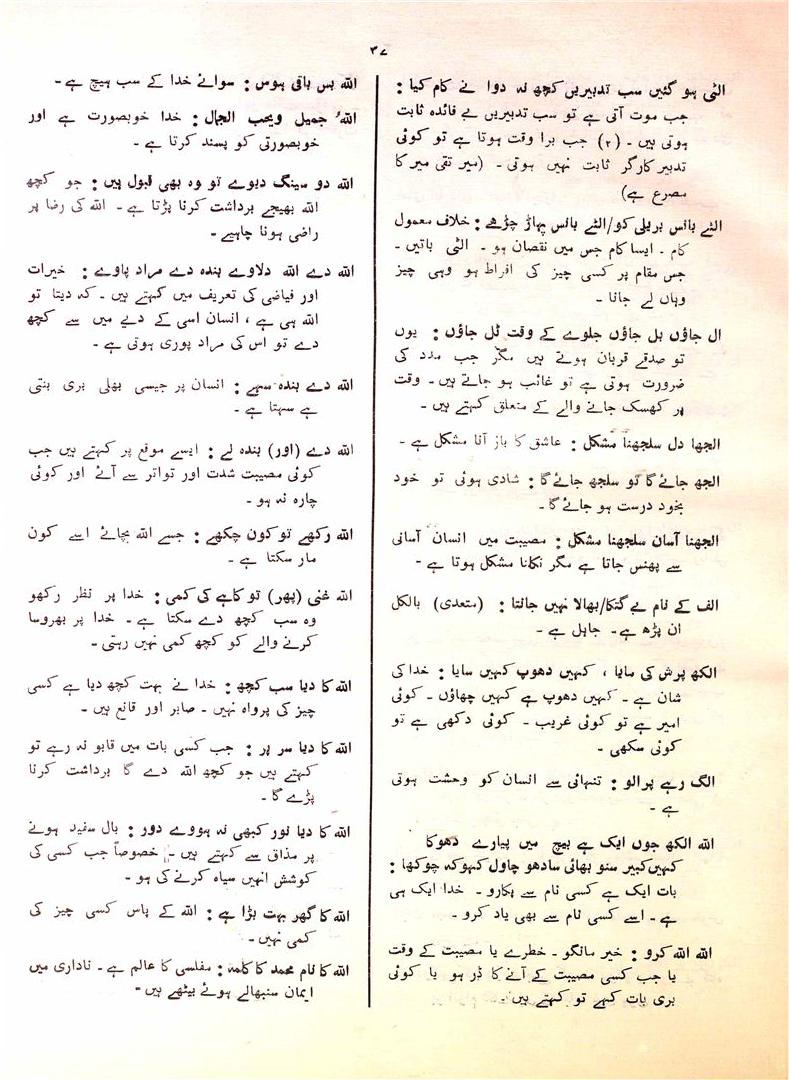 ۳۷
الٹی ہو گئیں سب تدبیریں کچھ نہ دوا نے کام کیا :
جب موت آتی ہے تو سب تدبیریں بے فائدہ ثابت
ہوتی ہیں ۔ (۲) جب برا وقت ہوتا ہے تو کوئی
تدبیر کارگر ثابت نہیں ہوتی ۔ (میر تقی میر کا
مصرع ہے)
الٹے بانس بریلی کو/الٹے بانس پہاڑ چڑھے : خلاف معمول
کام ۔ ایسا کام جس میں نقصان ہو ۔ الٹی باتیں ۔
جس مقام پر کسی چیز کی افراط ہو وہی چیز
وہاں لے جانا ۔
ال جاؤں بل جاؤں جلوے کے وقت ٹل جاؤں : یوں
تو صدقے قربان ہوتے ہیں مگر جب مدد کی
ضرورت ہوتی ہے تو غائب ہو جاتے ہیں ۔ وقت
پر کھسک جانے والے کے متعلق کہتے ہیں ۔
الجھا دل سلجھنا مشکل : عاشق کا باز آنا مشکل ہے ۔
الجھ جائے گا تو سلجھ جائے گا : شادی ہوئی تو خود
بخود درست ہو جائے گا ۔
الجھنا آسان سلجھنا مشکل : مصیبت میں انسان آسانی
سے پھنس جاتا ہے مگر نکلنا مشکل ہوتا ہے ۔
الف کے نام بے گتکا/بھالا نہیں جانتا : (متعدی) بالکل
ان پڑھ ہے ۔ جاہل ہے ۔
الکھ پرش کی مایا ، کہیں دھوپ کہیں سایا : خدا کی
شان ہے ۔ کہیں دھوپ ہے کہیں چھاؤں ۔ کوئی
امیر ہے تو کوئی غریب ۔ کوئی دکھی ہے تو
کوئی سکھی ۔
الگ رہے پرالو : تنہائی سے انسان کو وحشت ہوتی
ہے ۔
اللہ الکھ جوں ایک ہے بیچ میں پیارے دھوکا
کہیں کبیر سنو بھائی سادھو چاول کہو کہ چوکھا :
بات ایک ہے کسی نام سے پکارو ۔ خدا ایک ہی
ہے ۔ اسے کسی نام سے بھی یاد کرو ۔
اللہ اللہ کرو : خیر مانگو ۔ خطرے یا مصیبت کے وقت
یا جب کسی مصیبت کے آنے کا ڈر ہو یا کوئی
بری بات کہے تو کہتے ہیں ۔
اللہ بس باقی ہوس : سوائے خدا کے سب ہیچ ہے ۔
اللہُ جمیل ویحب الجمال : خدا خوبصورت ہے اور
خوبصورتی کو پسند کرتا ہے ۔
اللہ دو سینگ دیوے تو وہ بھی قبول ہیں : جو کچھ
اللہ بھیجے برداشت کرنا پڑتا ہے ۔ اللہ کی رضا پر
راضی ہونا چاہیے ۔
اللہ دے اللہ دلاوے بندہ دے مراد پاوے : خیرات
اور فیاضی کی تعریف میں کہتے ہیں ۔ کہ دیتا تو
اللہ ہی ہے ، انسان اسی کے دیے میں سے کچھ
دے تو اس کی مراد پوری ہوتی ہے ۔
اللہ دے بندہ سہے : انسان پر جیسی بھلی بری بنتی
ہے سہتا ہے ۔
اللہ دے (اور) بندہ لے : ایسے موقع پر کہتے ہیں جب
کوئی مصیبت شدت اور تواتر سے آئے اور کوئی
چارہ نہ ہو ۔
اللہ رکھے تو کون چکھے : جسے اللہ بچائے اسے کون
مار سکتا ہے ۔
اللہ غنی (پھر) تو کاہے کی کمی : خدا پر نظر رکھو
وہ سب کچھ دے سکتا ہے ۔ خدا پر بھروسا
کرنے والے کو کچھ کمی نہیں رہتی ۔
اللہ کا دیا سب کچھ : خدا نے بہت کچھ دیا ہے کسی
چیز کی پرواہ نہیں ۔ صابر اور قانع ہیں ۔
اللہ کا دیا سر پر : جب کسی بات میں قابو نہ رہے تو
کہتے ہیں جو کچھ اللہ دے گا برداشت کرنا
پڑے گا ۔
اللہ کا دیا نور کبھی نہ ہووے دور : بال سفید ہونے
پر مذاق سے کہتے ہیں ۔ خصوصاً جب کسی کی
کوشش انہیں سیاہ کرنے کی ہو ۔
اللہ کا گھر بہت بڑا ہے : اللہ کے پاس کسی چیز کی
کمی نہیں ۔
اللہ کا نام محمد کا کلمہ : مفلسی کا عالم ہے ۔ ناداری میں
ایمان سنبھالے ہوئے بیٹھے ہیں ۔